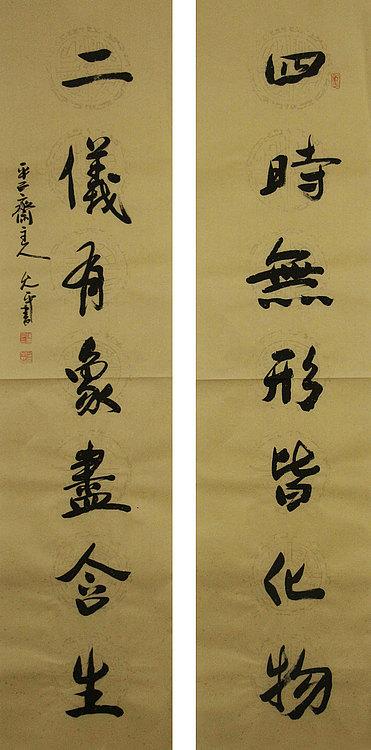 四時無形皆化物
二儀有象盡含生
齋主人 允平書